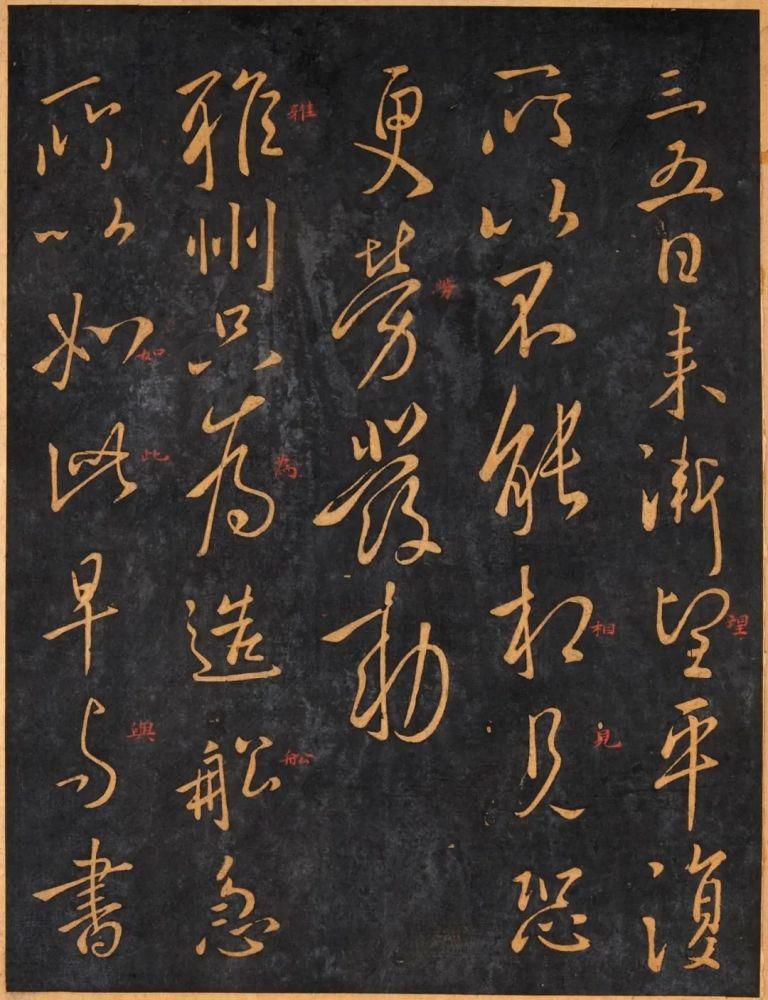 三五日来漸望平復
所以不能相見恐
相
見
更勞發動
勞
雅州只為造舩急
雅
為
舩
所以如此早與書
如
此
與